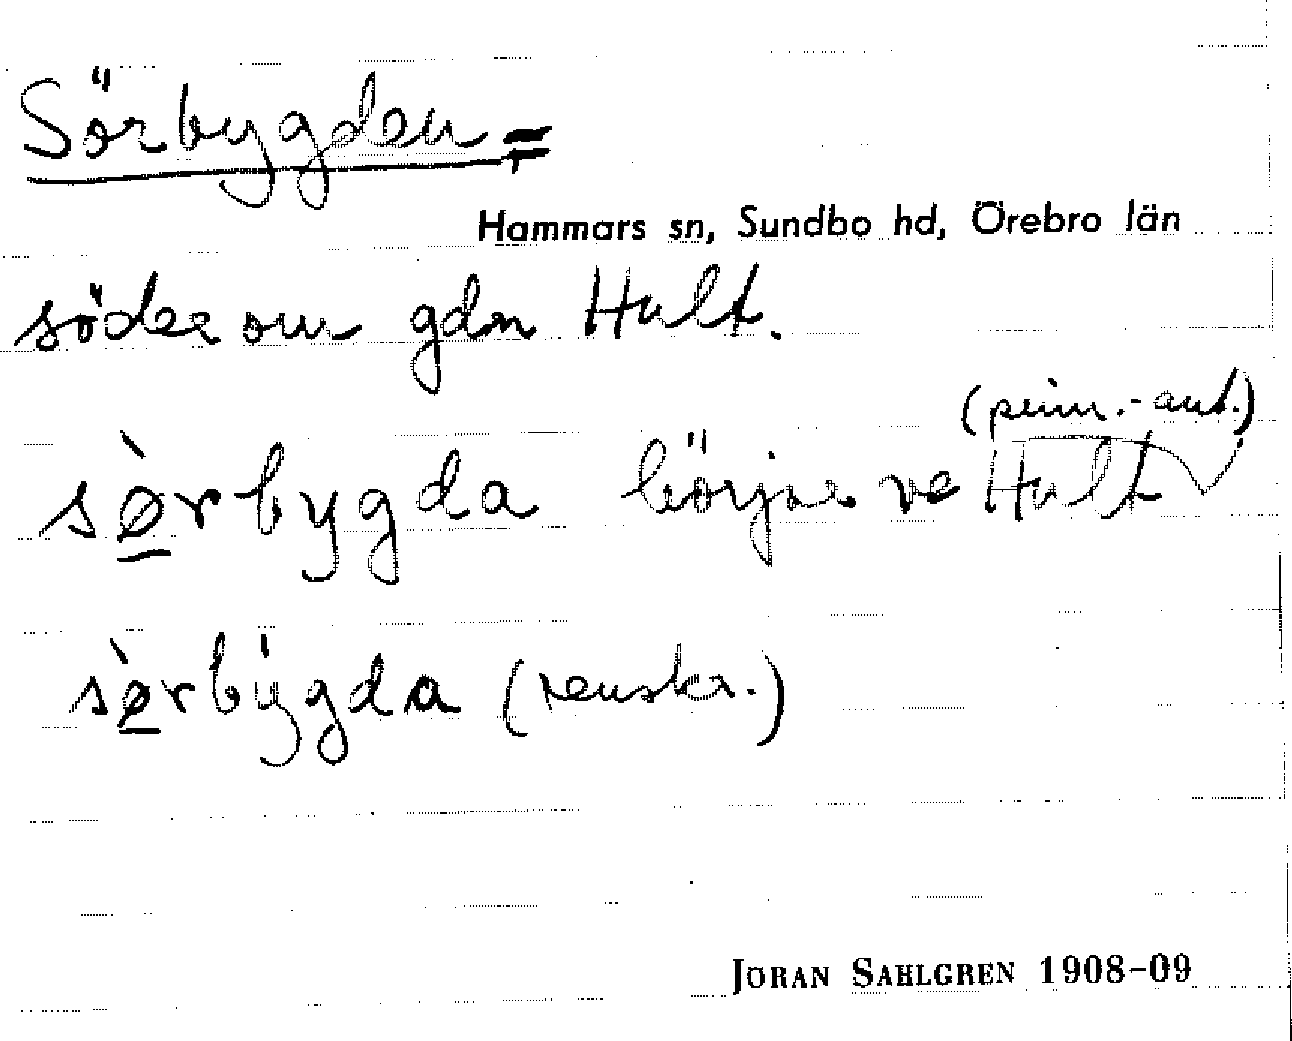 Sörbygden =
Hammars sn, Sundbo hd, Örebro län
söder om gdn Hult.
(prim.-ant.)
sø̀rbygda börjar ve Hult
sø̀rbýgda (renskr.)
JORAN SAHLGREN 1908-09